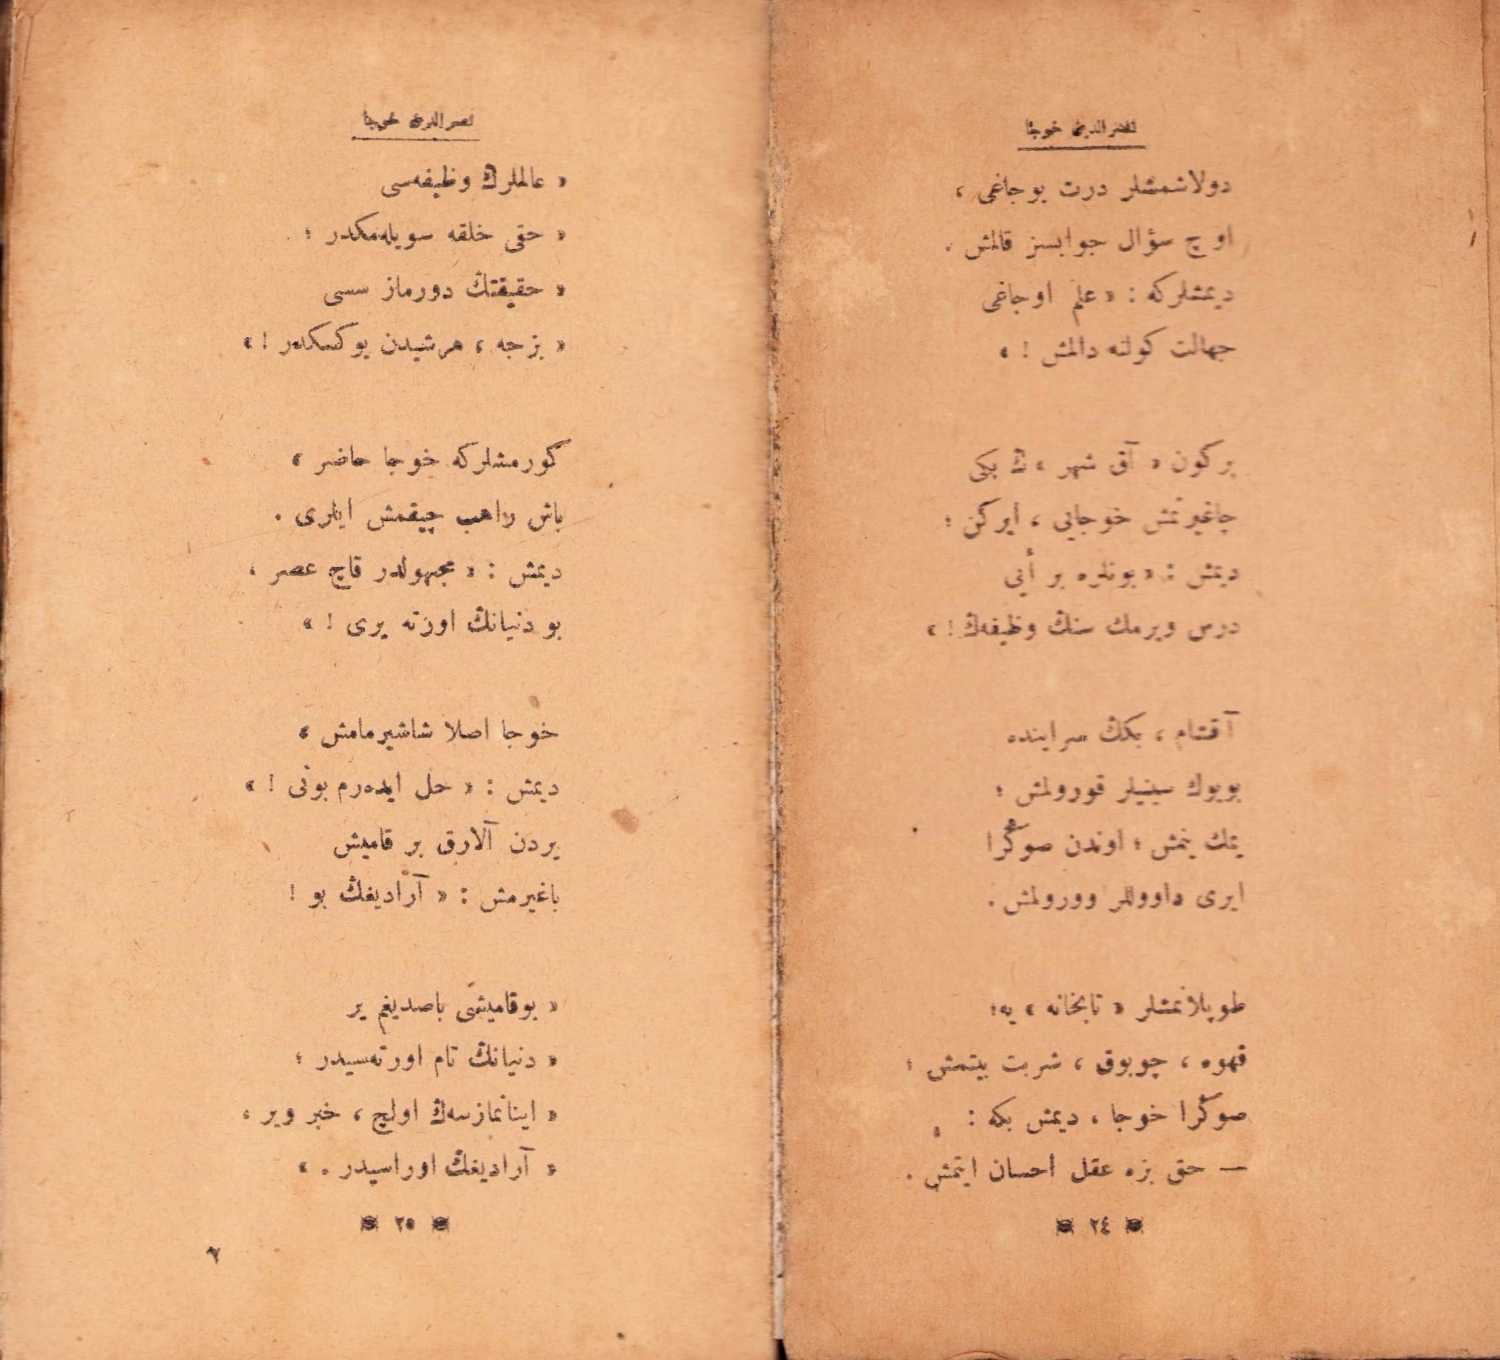 نصرالدین خوجا
دولاشمشلر درت بوجاغی ،
اوچ سؤال جوابسز قالمش .
دیمشلركه : « علم اوجاغی
جهالت كولنه دالمش ! »
بركون « آق شهر » ڭ بكی
چاغیرتمش خوجایی ، ایركن ؛
دیمش : « بونلره بر أیی
درس ویرمك سنڭ وظیفه‌ڭ ! »
آقشام ، بكڭ سراینده
بویوك سینیلر قورولمش ؛
یتك ینمش ؛ اوندن صوڭرا
ایری داووللر وورولمش .
طوپلانمشلر « تابخانه » یه؛
قهوه ، چوبوق ، شربت بیتمش ؛
صوڭرا خوجا ، دیمش بكه :
— حق بزه عقل احسان ایتمش .
٢٤
نصرالدین خوجا
« عالملرڭ وظیفه‌سی
« حقی خلقه سویله‌مكدر ؛
« حقیقتڭ دورماز سسی
« بزجه ، هرشیدن یوكسكدر ! »
كورمشلركه خوجا حاضر ،
باش راهب چیقمش ایلری .
دیمش : « مجهولدر قاچ عصر ،
بو دنیانڭ اورته یری ! »
خوجا اصلا شاشیرمامش ،
دیمش : « حل ایده‌رم بونی ! »
یردن آلارق بر قامیش
باغیرمش : « آرادیغڭ بو !
« بوقامیشی باصدیغم یر
« دنیانڭ تام اورته‌سیدر ؛
« اینانمازسه‌ڭ اولچ ، خبر ویر ،
« آرادیغڭ اوراسیدر . »
٢٥
٢